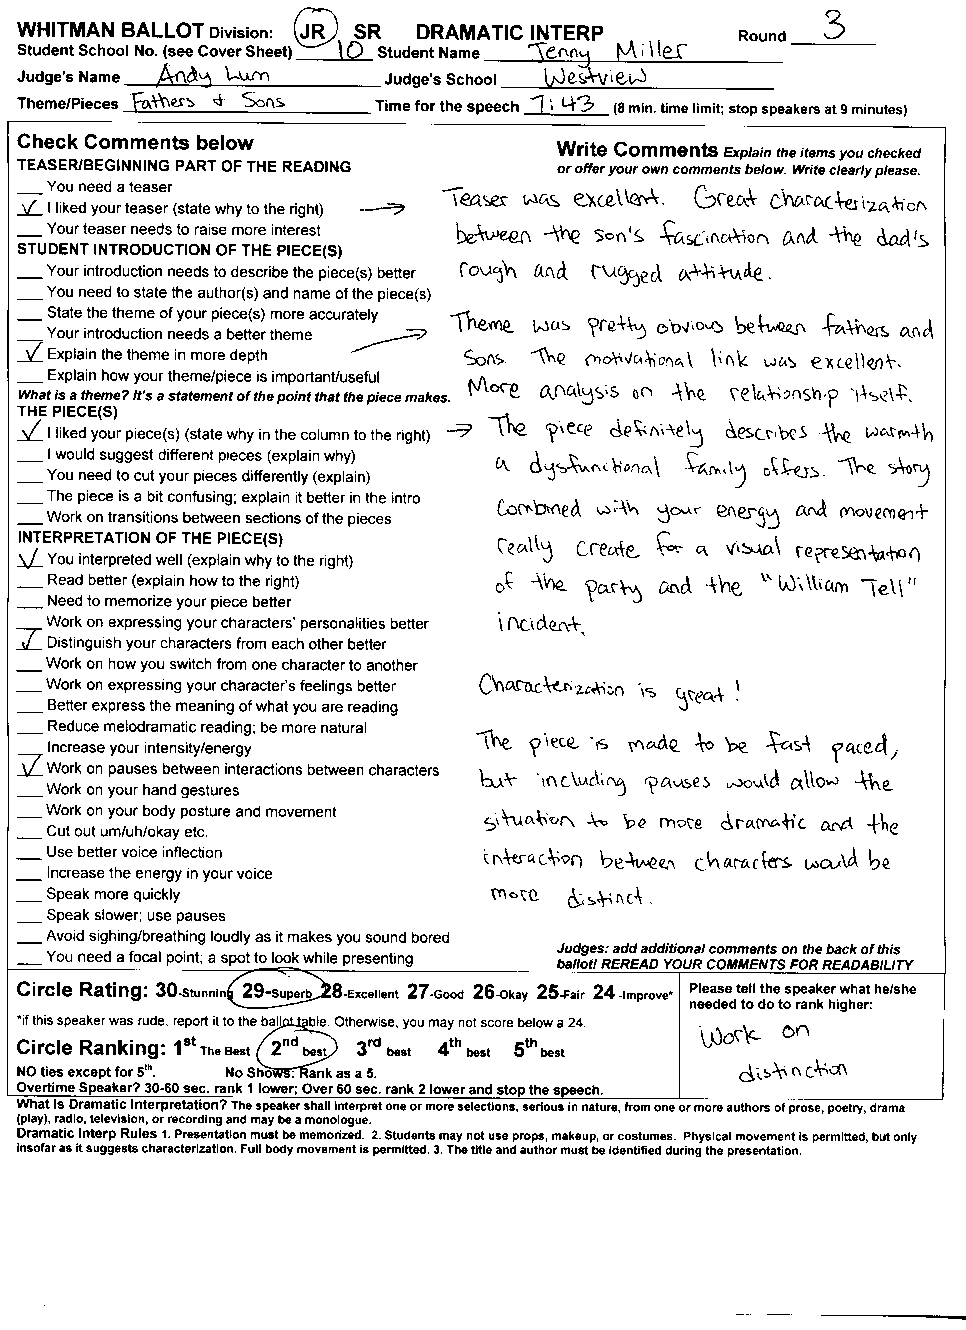 WHITMAN BALLOT Division: JR SR DRAMATIC INTERP Round 3
Student School No. (see Cover Sheet) 10 Student Name Jenny Miller
Judge's Name Andy Lum Judge's School Westview
Theme/Pieces Fathers & Sons Time for the speech 7:43 (8 min. time limit; stop speakers at 9 minutes)
Check Comments below
TEASER/BEGINNING PART OF THE READING
___ You need a teaser
✓ I liked your teaser (state why to the right) →
___ Your teaser needs to raise more interest
STUDENT INTRODUCTION OF THE PIECE(S)
___ Your introduction needs to describe the piece(s) better
___ You need to state the author(s) and name of the piece(s)
___ State the theme of your piece(s) more accurately
___ Your introduction needs a better theme
✓ Explain the theme in more depth →
___ Explain how your theme/piece is important/useful
What is a theme? It's a statement of the point that the piece makes.
THE PIECE(S)
✓ I liked your piece(s) (state why in the column to the right) →
___ I would suggest different pieces (explain why)
___ You need to cut your pieces differently (explain)
___ The piece is a bit confusing; explain it better in the intro
___ Work on transitions between sections of the pieces
INTERPRETATION OF THE PIECE(S)
✓ You interpreted well (explain why to the right)
___ Read better (explain how to the right)
___ Need to memorize your piece better
___ Work on expressing your characters' personalities better
✓ Distinguish your characters from each other better
___ Work on how you switch from one character to another
___ Work on expressing your character's feelings better
___ Better express the meaning of what you are reading
___ Reduce melodramatic reading; be more natural
___ Increase your intensity/energy
✓ Work on pauses between interactions between characters
___ Work on your hand gestures
___ Work on your body posture and movement
___ Cut out um/uh/okay etc.
___ Use better voice inflection
___ Increase the energy in your voice
___ Speak more quickly
___ Speak slower; use pauses
___ Avoid sighing/breathing loudly as it makes you sound bored
___ You need a focal point; a spot to look while presenting
Write Comments Explain the items you checked
or offer your own comments below. Write clearly please.
Teaser was excellent. Great characterization
between the son's fascination and the dad's
rough and rugged attitude.
Theme was pretty obvious between fathers and
Sons. The motivational link was excellent.
More analysis on the relationship itself.
The piece definitely describes the warmth
a dysfunctional family offers. The story
Combined with your energy and movement
really create for a visual representation
of the party and the "William Tell"
incident.
Characterization is great!
The piece is made to be fast paced,
but including pauses would allow the
situation to be more dramatic and the
interaction between characters would be
more distinct.
Judges: add additional comments on the back of this
ballot! REREAD YOUR COMMENTS FOR READABILITY
Circle Rating: 30-Stunning 29-Superb 28-Excellent 27-Good 26-Okay 25-Fair 24-Improve*
*if this speaker was rude, report it to the ballot table. Otherwise, you may not score below a 24.
Circle Ranking: 1st The Best 2nd best 3rd best 4th best 5th best
NO ties except for 5th. No Shows: Rank as a 5.
Overtime Speaker? 30-60 sec. rank 1 lower; Over 60 sec. rank 2 lower and stop the speech.
Please tell the speaker what he/she
needed to do to rank higher:
Work on
distinction
What is Dramatic Interpretation? The speaker shall interpret one or more selections, serious in nature, from one or more authors of prose, poetry, drama
(play), radio, television, or recording and may be a monologue.
Dramatic Interp Rules 1. Presentation must be memorized. 2. Students may not use props, makeup, or costumes. Physical movement is permitted, but only
insofar as it suggests characterization. Full body movement is permitted. 3. The title and author must be identified during the presentation.